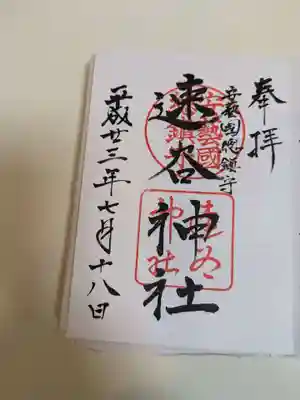 奉拝
安藝國総鎮守
速谷神社
平成廿三年七月十八日
安藝國
速谷
神社